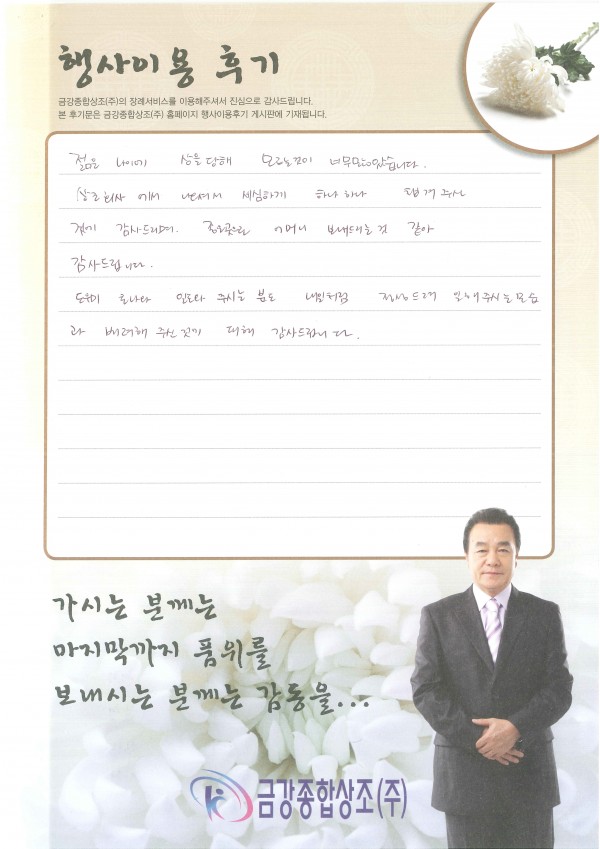 행사이용 후기
금강종합상조(주)의 장례서비스를 이용해주셔서 진심으로 감사드립니다.
본 후기문은 금강종합상조(주) 홈페이지 행사이용후기 게시판에 기재됩니다.
젊은 나이에 상을 당해 모르는것이 너무많았습니다.
상조회사 에서 나오셔서 세심하게 하나 하나 주신
것에 감사드리며. 좋은곳으로 어머니 보내드리는 것 같아
감사드립니다.
도우미 주시는 분도 내일처럼 일해주시는모습
과 배려해 주신것에 대해 감사드립니다.
가시는 분께는
마지막까지 품위를
보내시는 분께는 감동을...
금강종합상조(주)